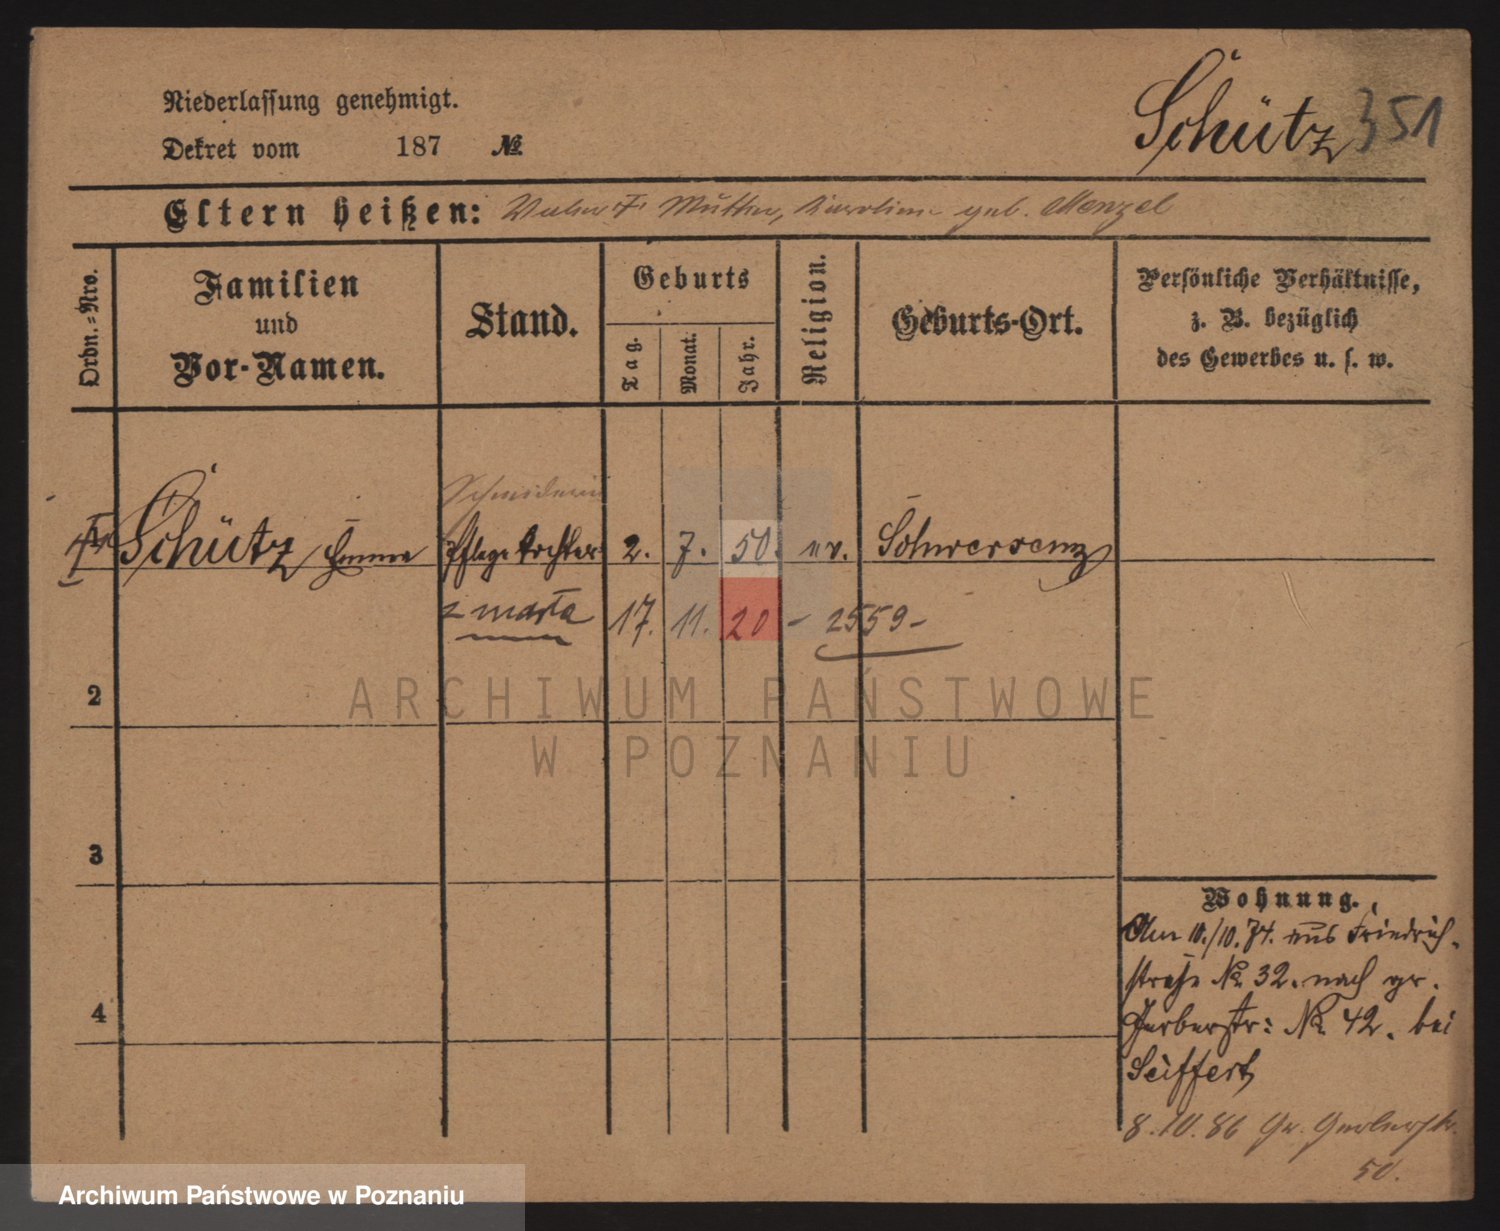 Niederlassung genehmigt.
Dekret vom 187 №
Schütz 351
Eltern heißen: Vater F. Mutter, Karoline geb. Menzel
Ordn.-Nro.
Familien
und
Vor-Namen.
Stand.
Geburts
Tag.
Monat.
Jahr.
Religion.
Geburts-Ort.
Persönliche Verhältnisse,
z. B. bezüglich
des Gewerbes u. s. w.
Schneiderin
1 Schütz Emma Pflegetochter 2. 7. 50. ev. Schwersenz
zmarła 17. 11. 20 - 2559-
2
ARCHIWUM PAŃSTWOWE
W POZNANIU
3
4
Wohnung.
Am 10./10. 74. aus Friedrich-
straße № 32. nach gr.
Gerberstr: № 42. bei
Seiffert
8.10.86 Gr. Gerberstr.
50.
Archiwum Państwowe w Poznaniu